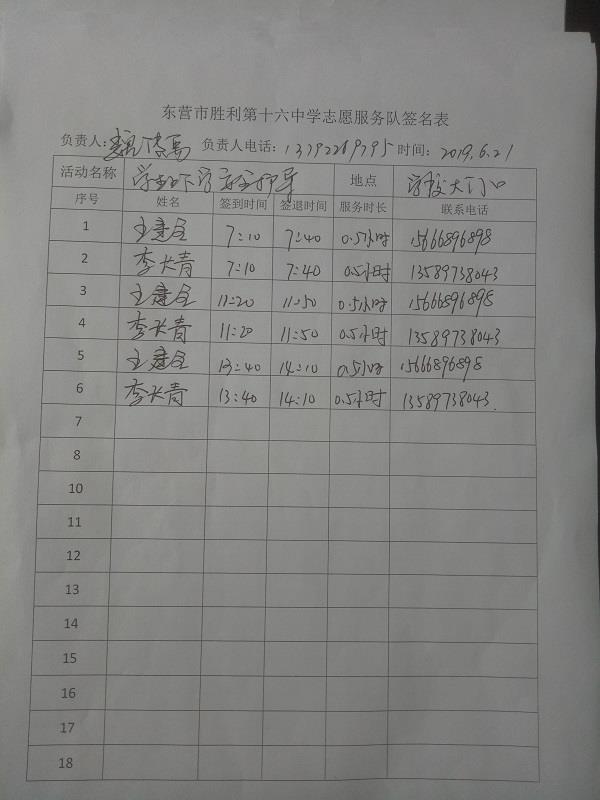 东营市胜利第十六中学志愿服务队签名表
负责人: 负责人电话: 时间: 2019.6.21
活动名称 学生上下学安全护导 地点 学校大门口
序号 姓名 签到时间 签退时间 服务时长 联系电话
1 王建全 7:10 7:40 0.5小时 15666896898
2 李长青 7:10 7:40 0.5小时 13589738043
3 王建全 11:20 11:50 0.5小时 15666896898
4 李长青 11:20 11:50 0.5小时 13589738043
5 王建全 13:40 14:10 0.5小时 15666896898
6 李长青 13:40 14:10 0.5小时 13589738043.
7
8
10
11
12
13
14
15
16
17
18